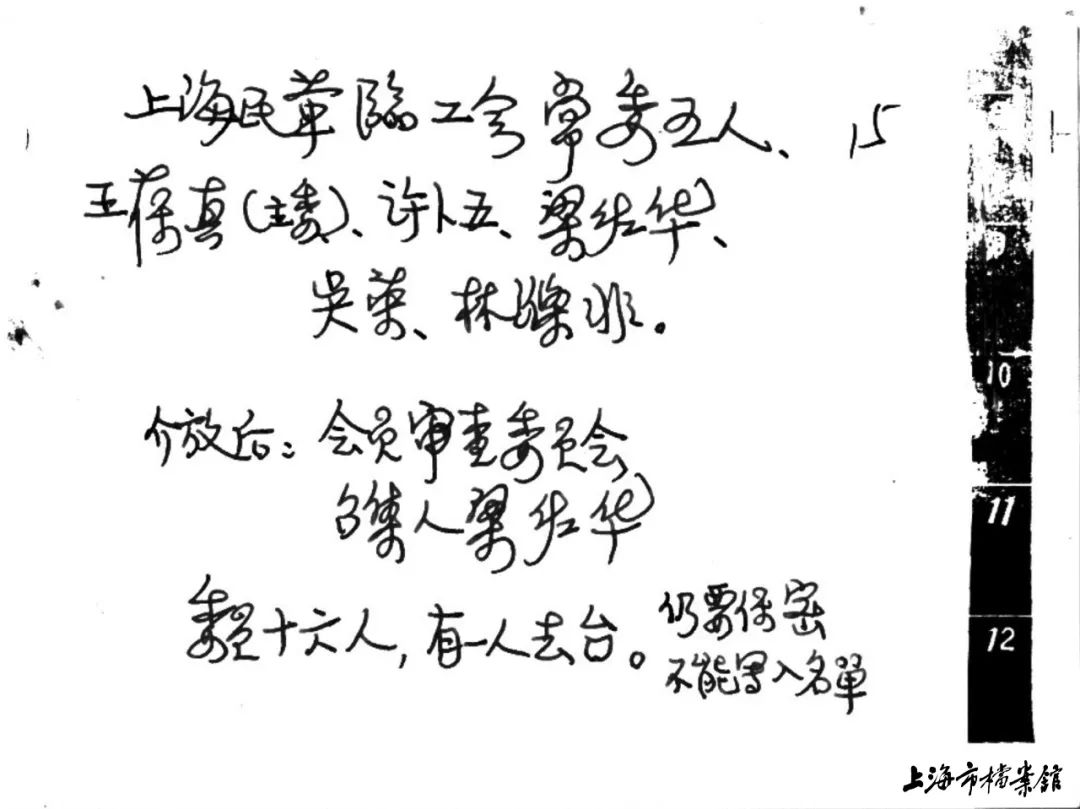 上海民革临工会常委五人、 15
王葆真(主委)、许卜五、梁佐华、
吴荣、林涤非。
介放后：会员审查委员会
召集人梁佐华
委员十六人，有一人去台。
仍要保密
不能写入名單
10
11
12
上海市檔案館